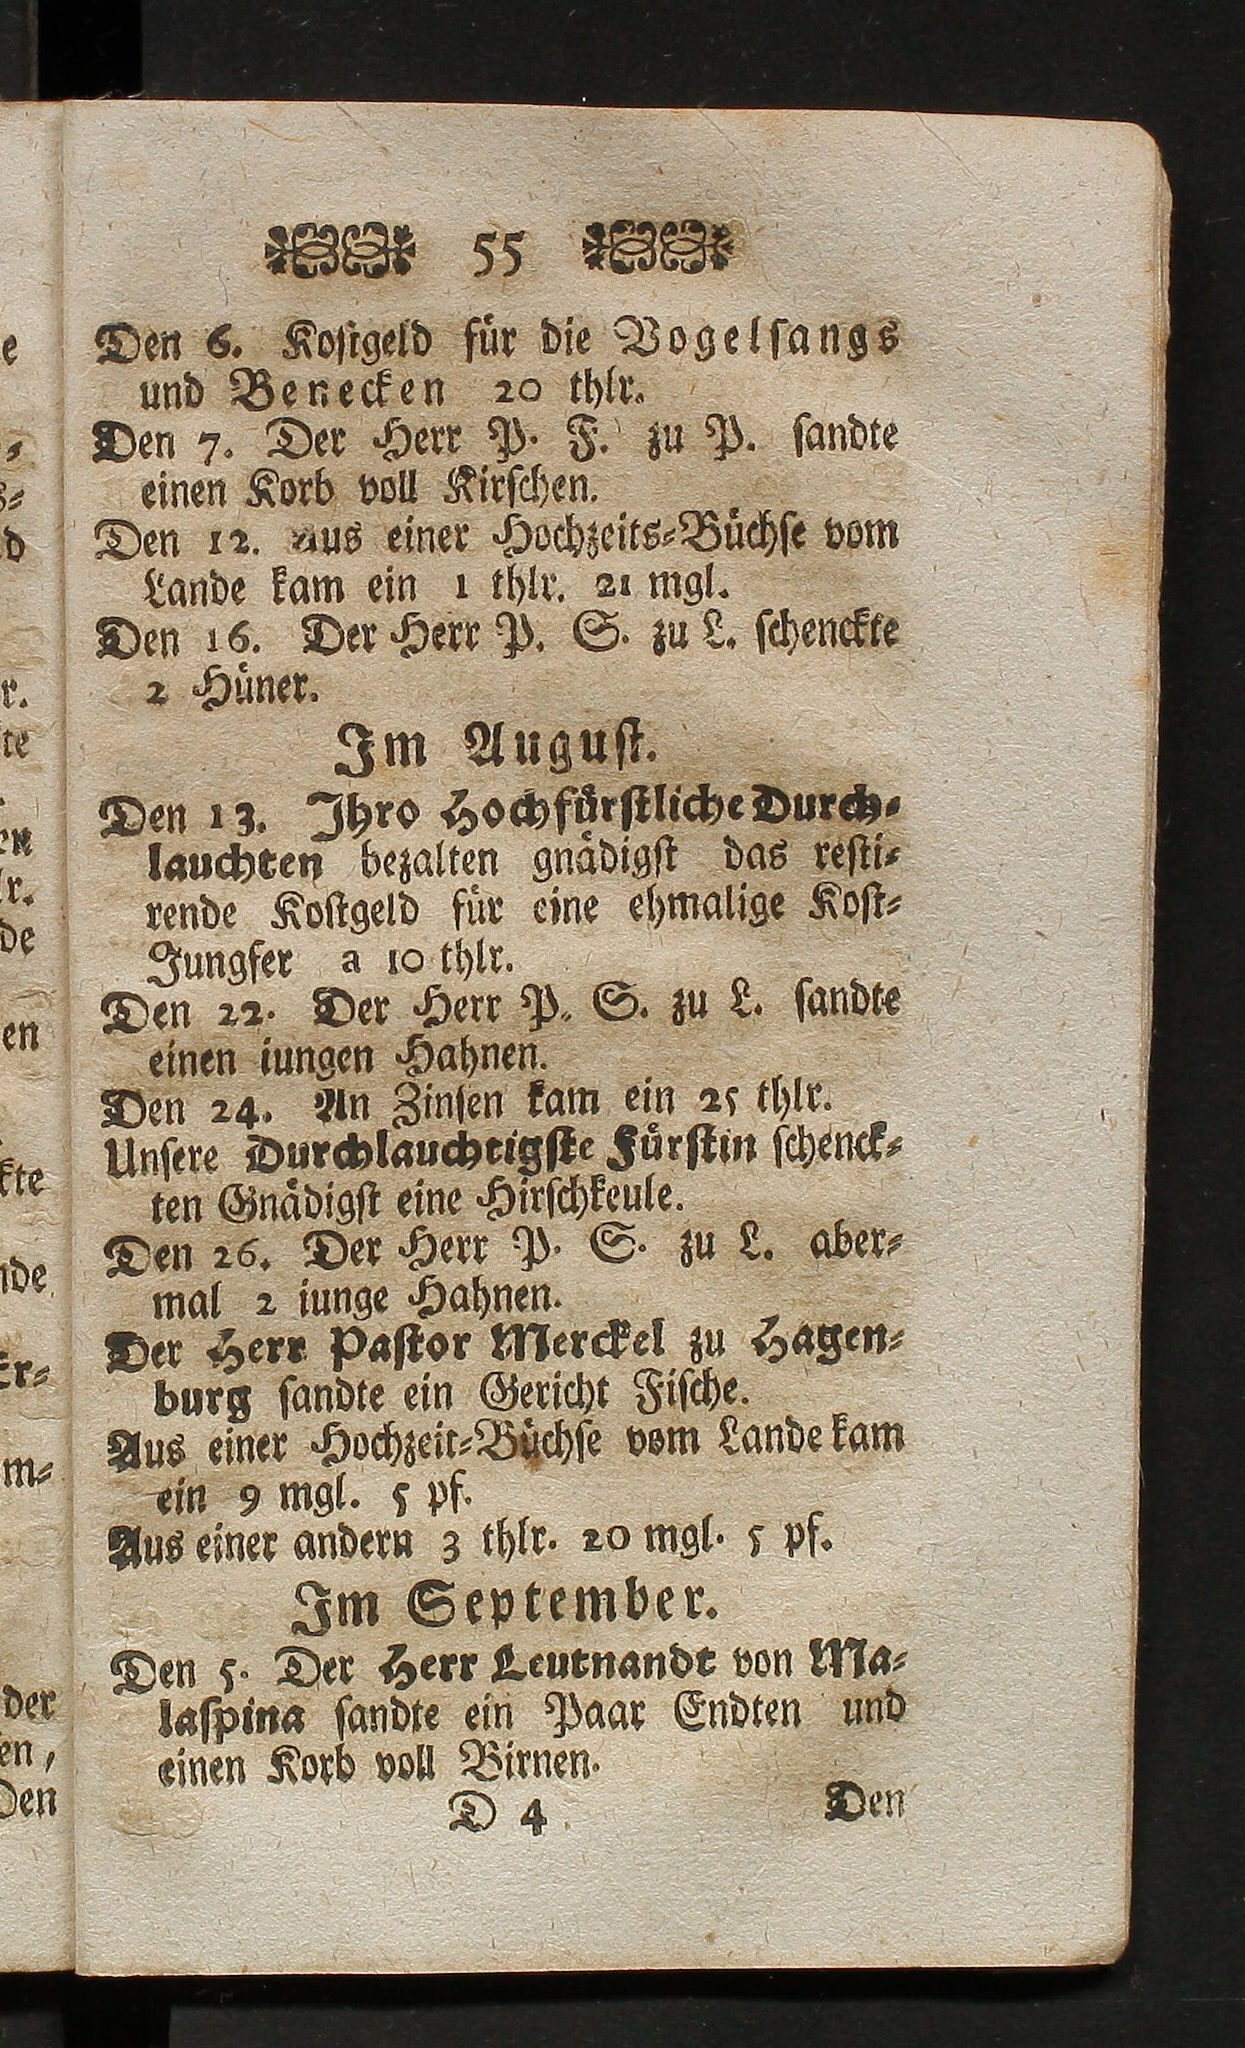 55
Den 6. Kostgeld für die Vogelsangs
und Benecken 20 thlr.
Den 7. Der Herr P. F. zu P. sandte
einen Korb voll Kirschen.
Den 12. Aus einer Hochzeits-Büchse vom
Lande kam ein 1 thlr. 21 mgl.
Den 16. Der Herr P. S. zu L. schenckte
2 Hüner.
Im August.
Den 13. Ihro Hochfürstliche Durch-
lauchten bezalten gnädigst das resti-
rende Kostgeld für eine ehmalige Kost-
Jungfer a 10 thlr.
Den 22. Der Herr P. S. zu L. sandte
einen iungen Hahnen.
Den 24. An Zinsen kam ein 25 thlr.
Unsere Durchlauchtigste Fürstin schenck-
ten Gnädigst eine Hirschkeule.
Den 26. Der Herr P. S. zu L. aber-
mal 2 iunge Hahnen.
Der Herr Pastor Merckel zu Hagen-
burg sandte ein Gericht Fische.
Aus einer Hochzeit-Büchse vom Lande kam
ein 9 mgl. 5 pf.
Aus einer andern 3 thlr. 20 mgl. 5 pf.
Im September.
Den 5. Der Herr Leutnandt von Ma-
laspina sandte ein Paar Endten und
einen Korb voll Birnen.
D 4 Den